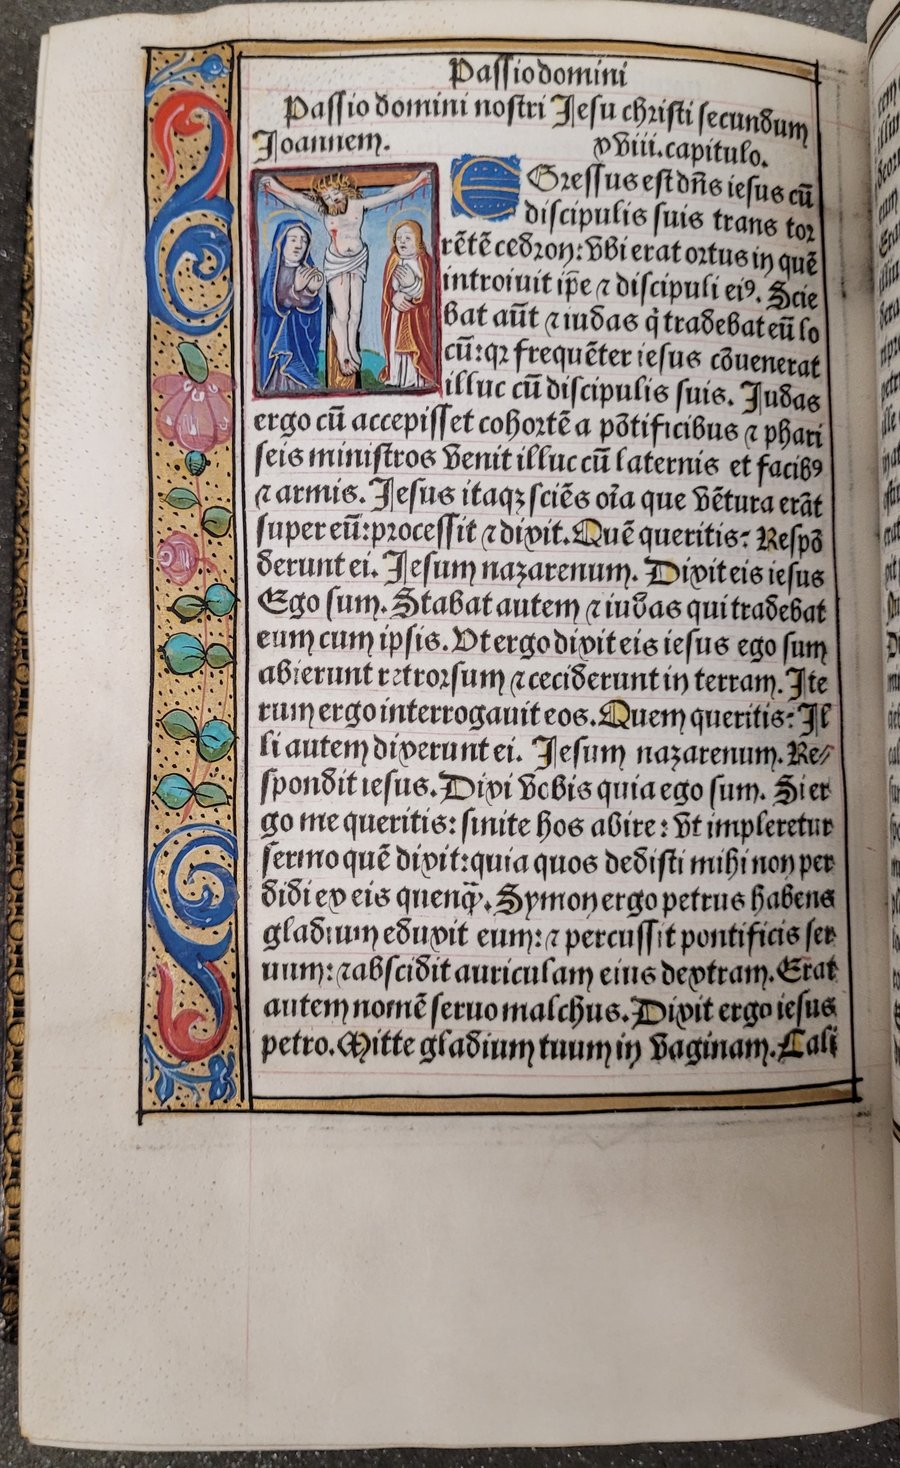 Passio domini
Passio domini nostri Jesu christi secundum
Joannem. xviii. capitulo.
EGressus est dn̄s iesus cū
discipulis suis trans tor
rētē cedron: vbi erat ortus in quē
introiuit ip̄e ⁊ discipuli eiꝰ. Scie
bat aūt ⁊ iudas q̇ tradebat eū lo
cū: qꝛ frequēter iesus cōuenerat
illuc cū discipulis suis. Judas
ergo cū accepisset cohortē a pōtificibus ⁊ phari
seis ministros venit illuc cū laternis et facibꝰ
⁊ armis. Jesus itaqꝫ sciēs oīa que vētura erāt
super eū: processit ⁊ dixit. Quē queritis: Respō
derunt ei. Jesum nazarenum. Dixit eis iesus
Ego sum. Stabat autem ⁊ iudas qui tradebat
eum cum ipsis. Vt ergo dixit eis iesus ego sum
abierunt retrorsum ⁊ ceciderunt in terram. Ite
rum ergo interrogauit eos. Quem queritis: Il
li autem dixerunt ei. Jesum nazarenum. Re⸗
spondit iesus. Dixi vobis quia ego sum. Si er
go me queritis: sinite hos abire: vt impleretur
sermo quē dixit: quia quos dedisti mihi non per
didi ex eis quenq̄. Symon ergo petrus habens
gladium eduxit eum: ⁊ percussit pontificis ser
uum: ⁊ abscidit auriculam eius dextram. Erat
autem nomē seruo malchus. Dixit ergo iesus
petro. Mitte gladium tuum in vaginam. Cali